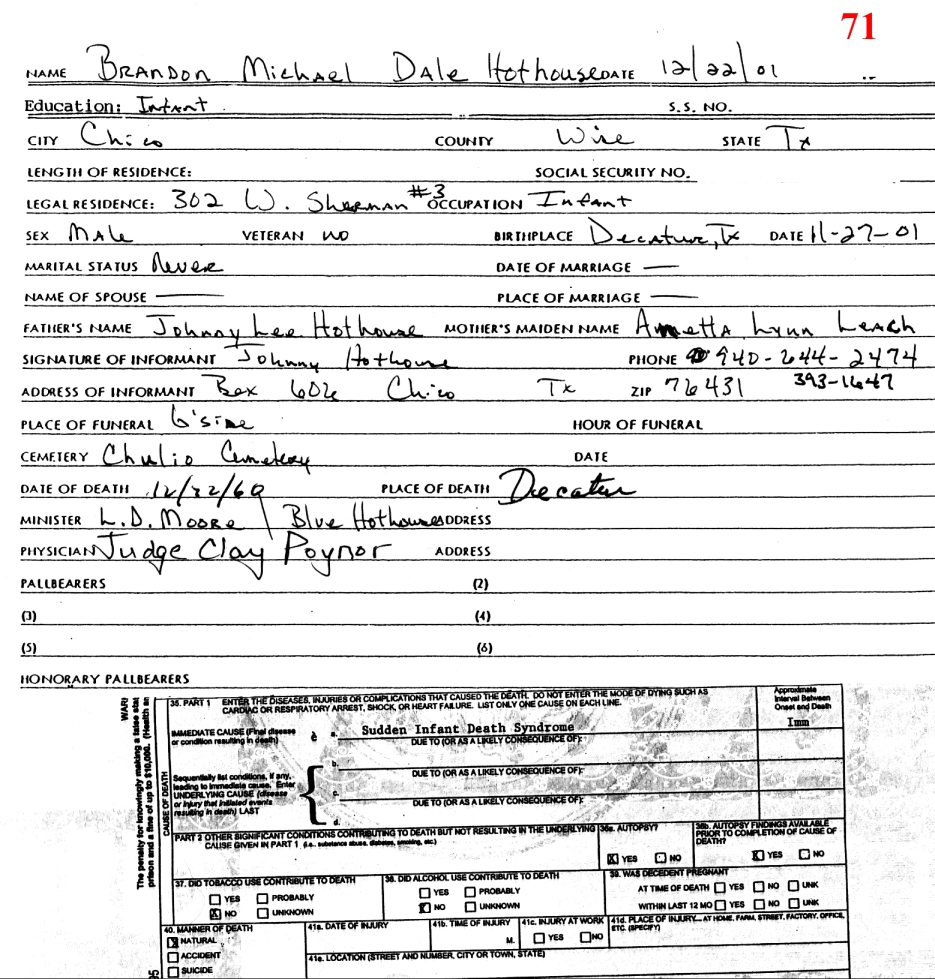 71
NAME Brandon Michael Dale Hothouse DATE 12/22/01
Education: Infant S.S. NO.
CITY Chico COUNTY Wise STATE Tx
LENGTH OF RESIDENCE: SOCIAL SECURITY NO.
LEGAL RESIDENCE: 302 W. Sherman #3 OCCUPATION Infant
SEX Male VETERAN NO BIRTHPLACE Decatur, Tx DATE 11-27-01
MARITAL STATUS Never DATE OF MARRIAGE —
NAME OF SPOUSE — PLACE OF MARRIAGE —
FATHER'S NAME Johnny Lee Hothouse MOTHER'S MAIDEN NAME Annetta Lynn Leach
SIGNATURE OF INFORMANT Johnny Hothouse PHONE 940-644-2474
ADDRESS OF INFORMANT Box 602 Chico Tx ZIP 76431 393-1647
PLACE OF FUNERAL G'side HOUR OF FUNERAL
CEMETERY Chulio Cemetery DATE
DATE OF DEATH 12/22/60 PLACE OF DEATH Decatur
MINISTER L.D. Moore / Blue Hothouse ADDRESS
PHYSICIAN Judge Clay Poynor ADDRESS
PALLBEARERS (2)
(3) (4)
(5) (6)
HONORARY PALLBEARERS
WAR
The penalty for knowingly making a false stat
prison and a fine of up to $10,000. (Health an
CAUSE OF DEATH
35. PART 1 ENTER THE DISEASES, INJURIES OR COMPLICATIONS THAT CAUSED THE DEATH. DO NOT ENTER THE MODE OF DYING SUCH AS
CARDIAC OR RESPIRATORY ARREST, SHOCK, OR HEART FAILURE. LIST ONLY ONE CAUSE ON EACH LINE.
Approximate
Interval Between
Onset and Death
IMMEDIATE CAUSE (Final disease
or condition resulting in death) è a. Sudden Infant Death Syndrome Imm
DUE TO (OR AS A LIKELY CONSEQUENCE OF):
b.
Sequentially list conditions, if any,
leading to immediate cause. Enter
UNDERLYING CAUSE (disease
or injury that initiated events
resulting in death) LAST
DUE TO (OR AS A LIKELY CONSEQUENCE OF):
c.
DUE TO (OR AS A LIKELY CONSEQUENCE OF):
d.
PART 2 OTHER SIGNIFICANT CONDITIONS CONTRIBUTING TO DEATH BUT NOT RESULTING IN THE UNDERLYING
CAUSE GIVEN IN PART 1 (i.e., substance abuse, diabetes, smoking, etc.)
36a. AUTOPSY?
X YES NO
36b. AUTOPSY FINDINGS AVAILABLE
PRIOR TO COMPLETION OF CAUSE OF
DEATH?
X YES NO
37. DID TOBACCO USE CONTRIBUTE TO DEATH
YES PROBABLY
X NO UNKNOWN
38. DID ALCOHOL USE CONTRIBUTE TO DEATH
YES PROBABLY
X NO UNKNOWN
39. WAS DECEDENT PREGNANT
AT TIME OF DEATH YES NO UNK
WITHIN LAST 12 MO YES NO UNK
40. MANNER OF DEATH
X NATURAL
ACCIDENT
SUICIDE
41a. DATE OF INJURY
41b. TIME OF INJURY
M.
41c. INJURY AT WORK
YES NO
41d. PLACE OF INJURY - AT HOME, FARM, STREET, FACTORY, OFFICE,
ETC. (SPECIFY)
41e. LOCATION (STREET AND NUMBER, CITY OR TOWN, STATE)